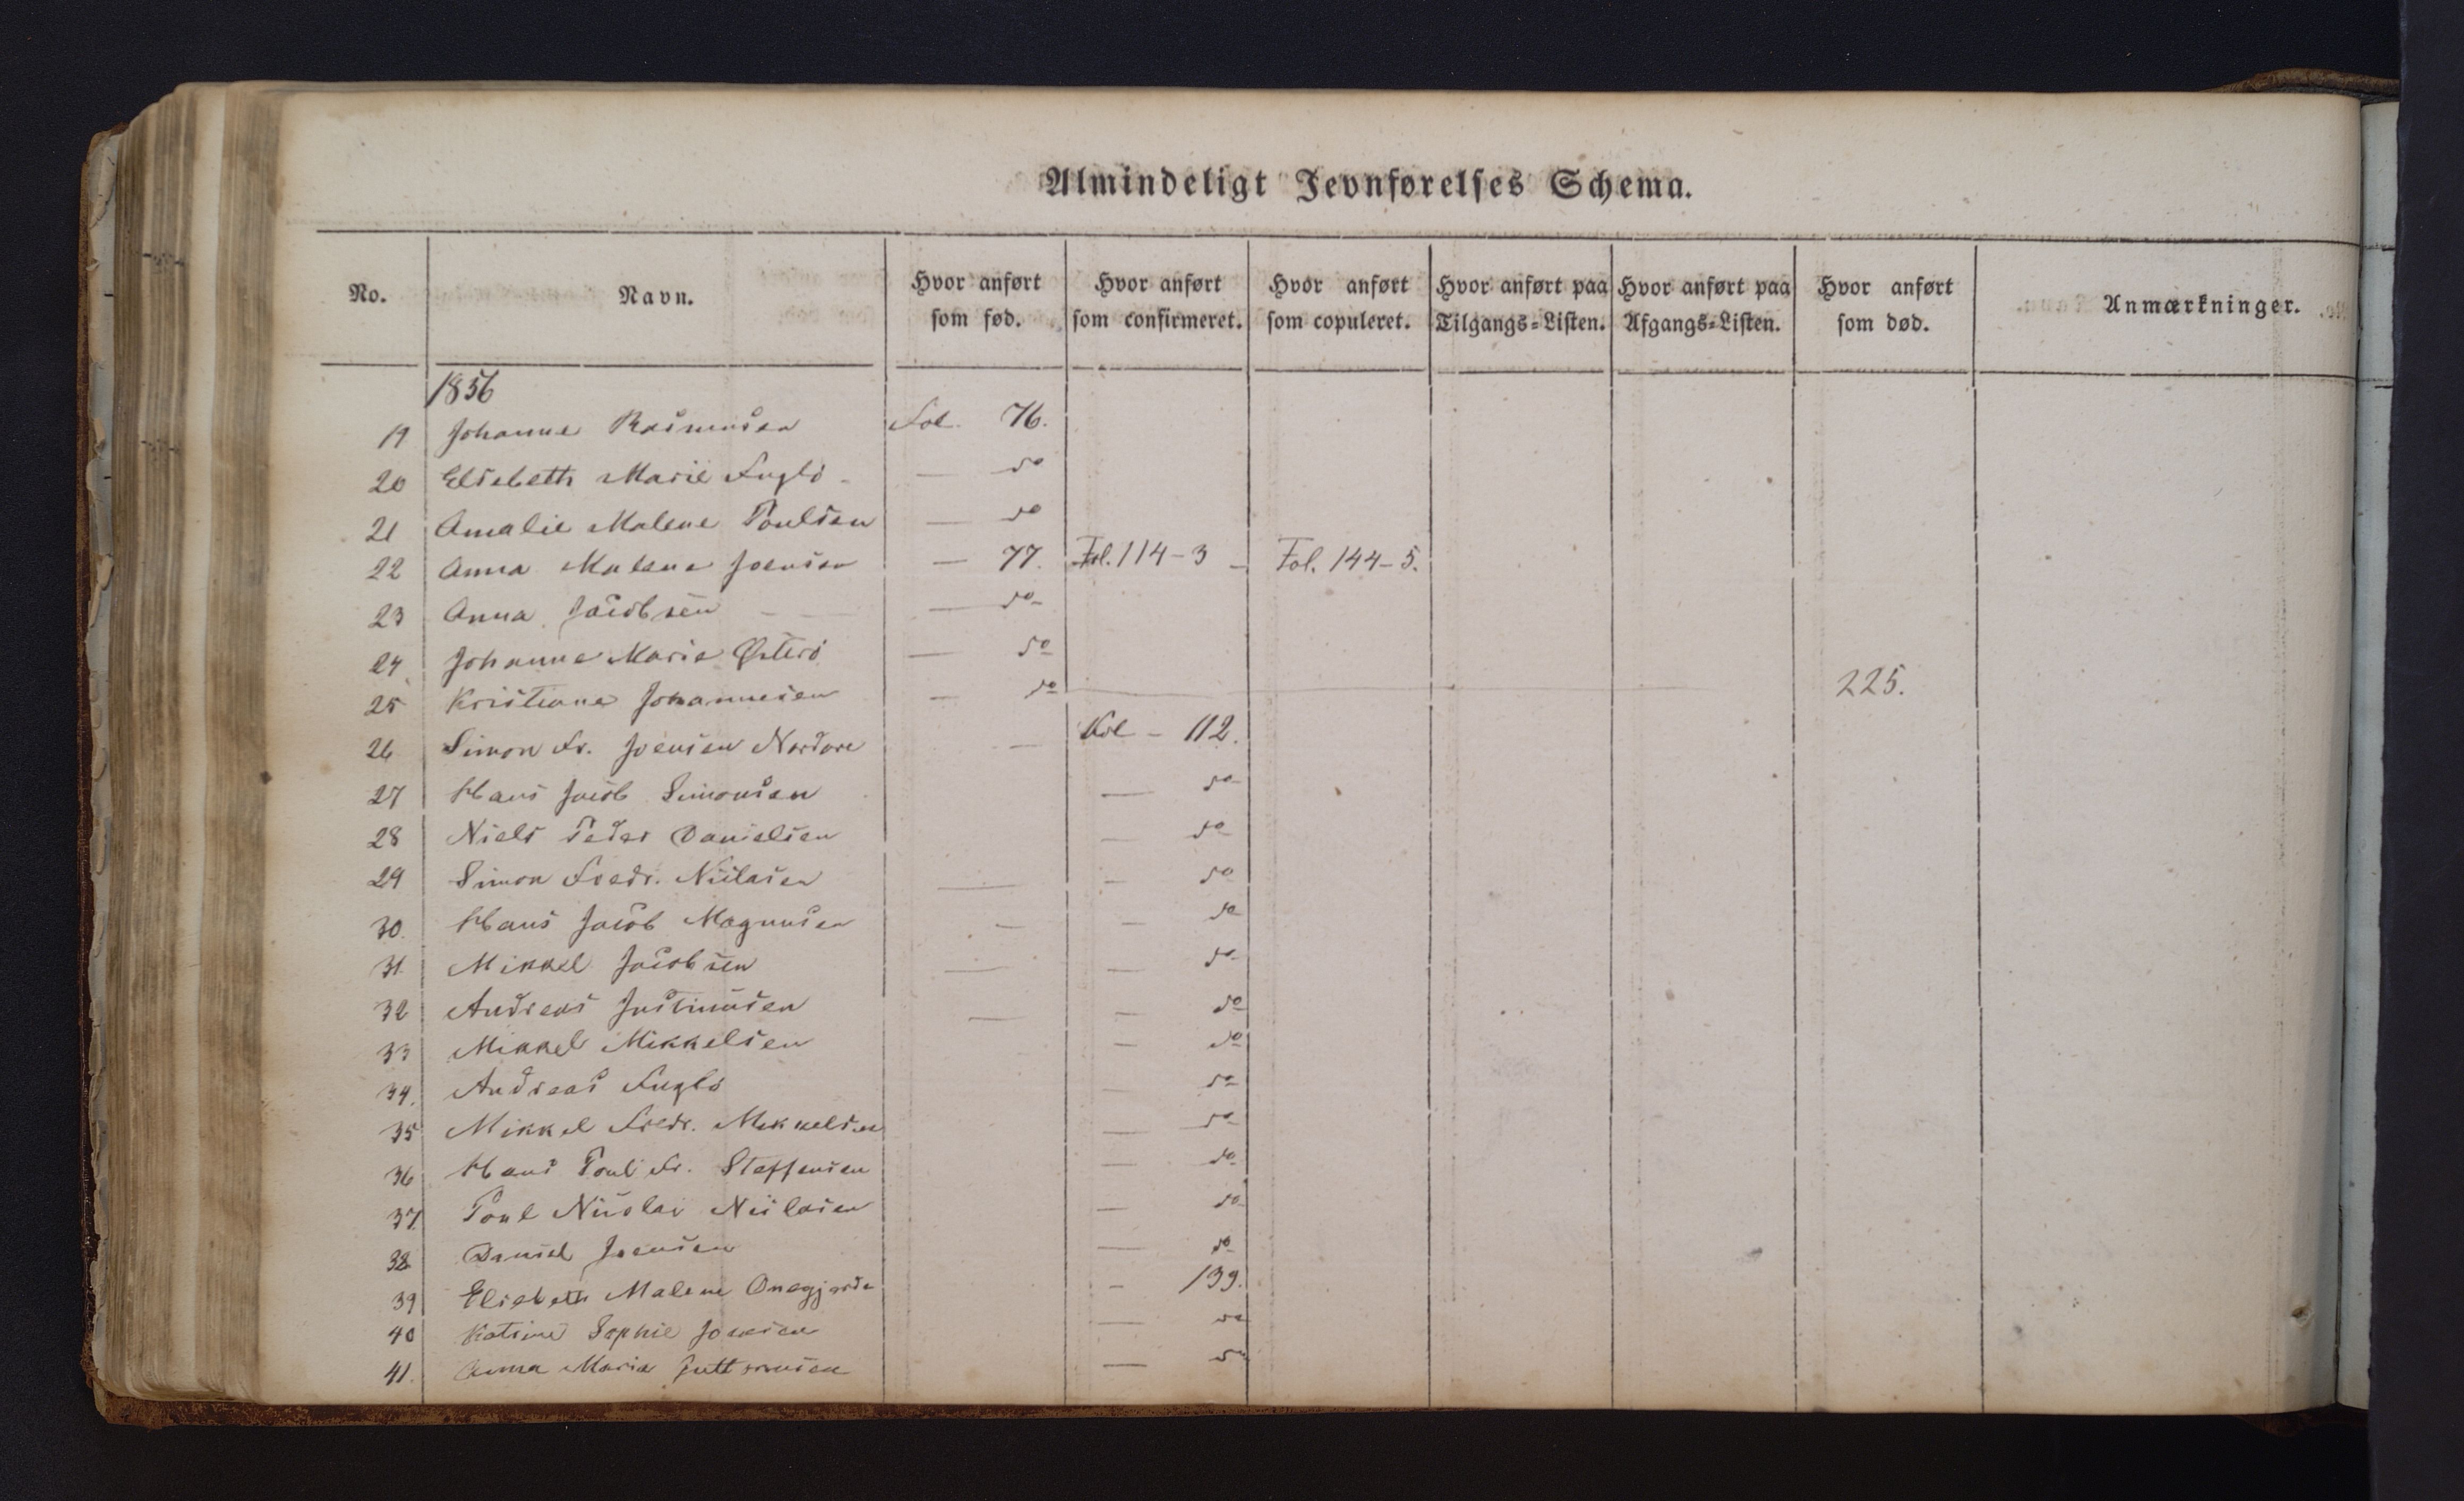 Almindeligt Jevnførelses Schema.
No. Navn. Hvor anført som fød. Hvor anført som confirmeret. Hvor anført som copuleret. Hvor anført paa Tilgangs=Listen. Hvor anført paa Afgangs=Listen. Hvor anført som død. Anmærkninger.
1856
19 Johanne Rasmusen Fol. 76.
20 Elsebeth Marie Fuglö - — do
21 Amalie Malene Poulsen — do
22 Anna Malene Joensen — 77. Fol. 114-3 - Fol. 144-5.
23 Anna Jacobsen — do
24 Johanne Marie Østerö — do
25 Kristiane Johannesen — do 225.
26 Simon Fr. Joensen Nordare — Fol - 112.
27 Hans Jacob Simonsen — do
28 Niels Peder Danielsen — do
29 Simon Fredr. Niclasen — — do
30. Hans Jacob Magnusen — — do
31. Mikkel Jacobsen — — do
32 Andreas Justinusen — — do
33 Mikkel Mikkelsen — do
34. Andreas Fuglö — do
35 Mikkel Fredr. Mikkelsen — do
36 Hans Poul Fr. Steffensen — do
37. Poul Nicolai Niclasen — do
38 Daniel Joensen — do
39 Elsebeth Malene - 139.
40 Katrine Sophie Joensen — do
41. Anna Maria — do